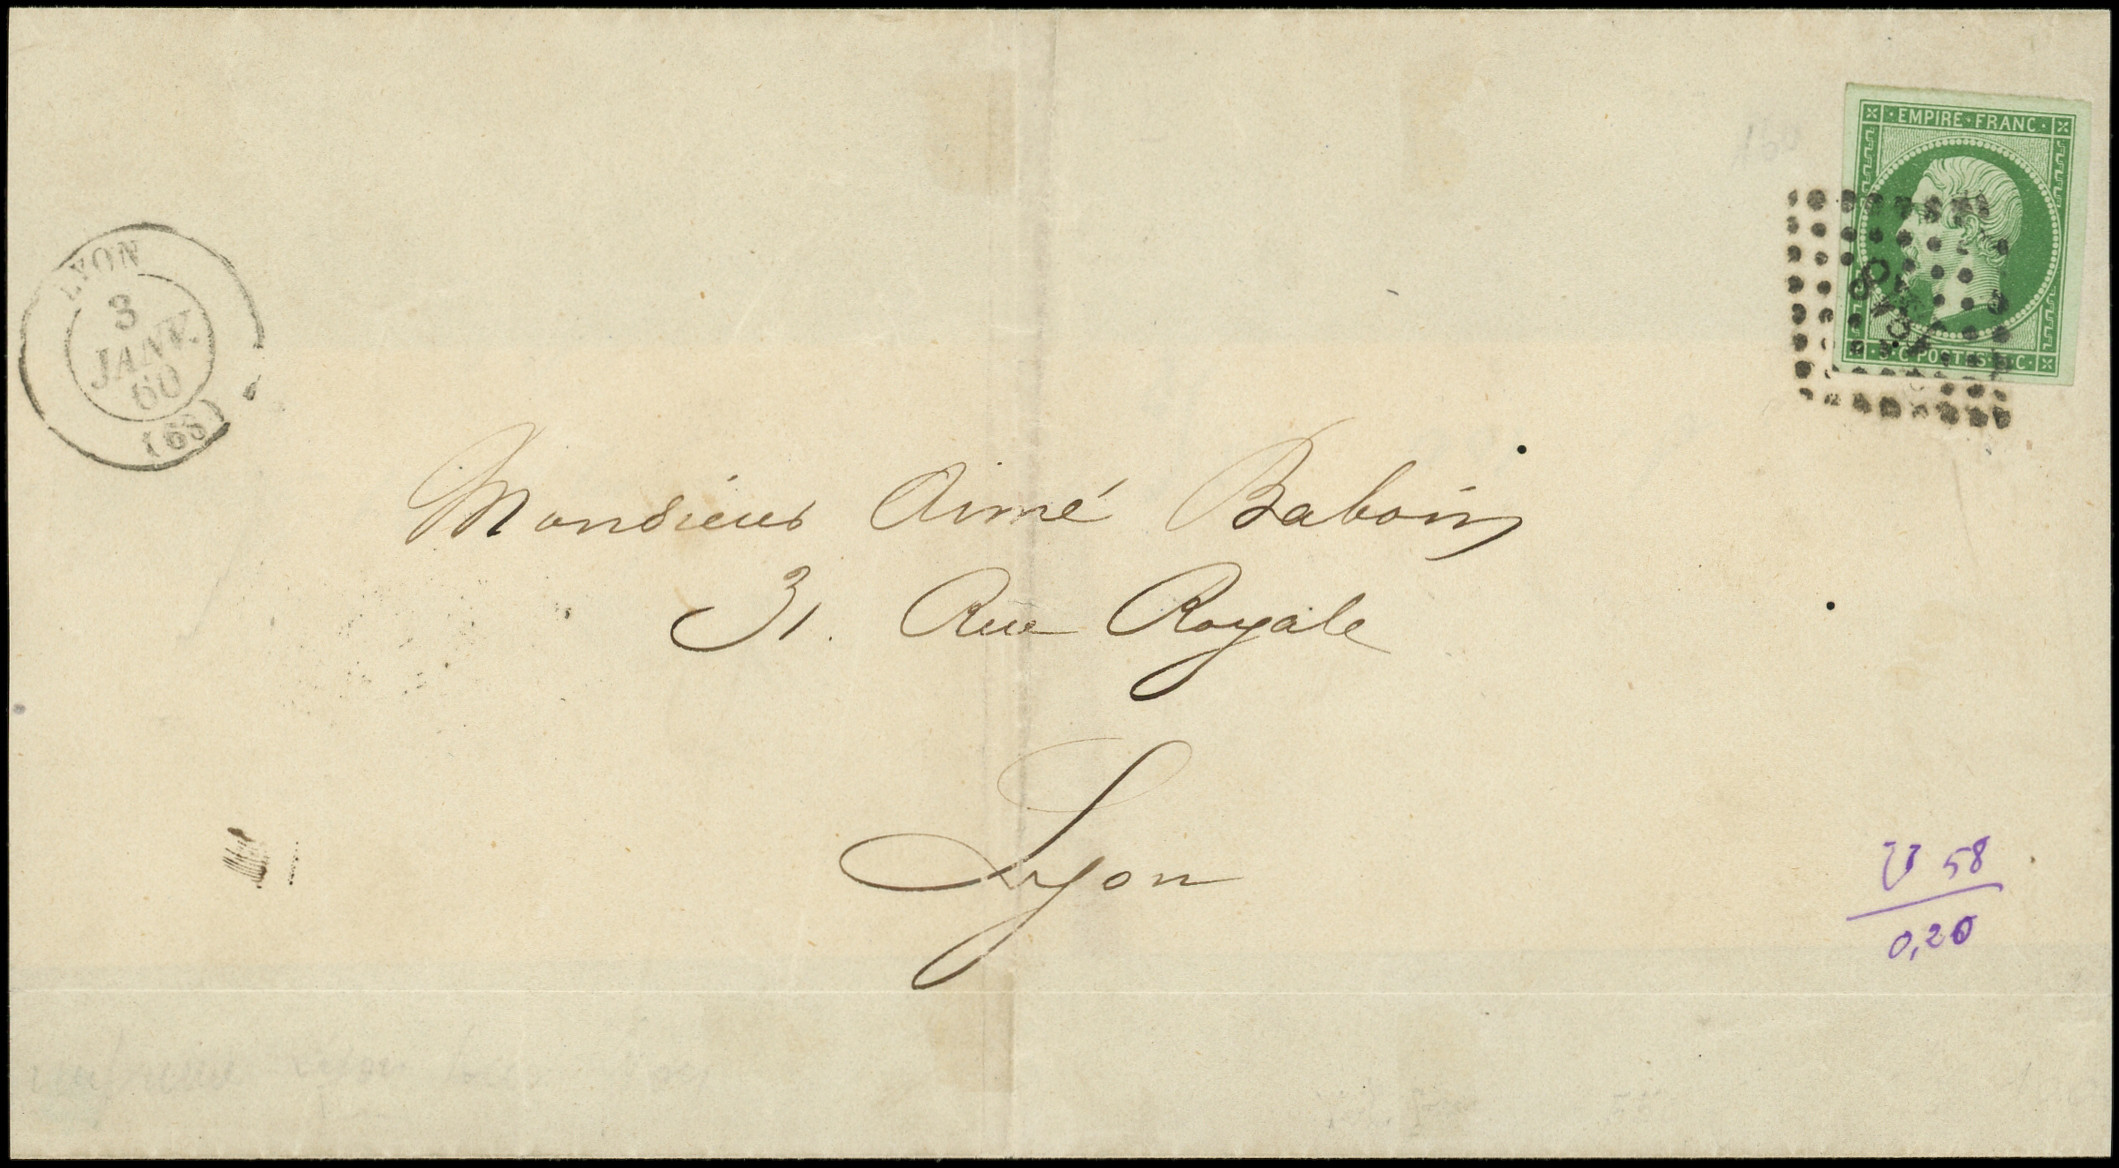 EMPIRE FRANC
5 C. POSTES 5 C.
LYON
3
JANV.
60
(68)
Monsieur Aimé Baboin
31. Rue Royale
Lyon
58
0,20